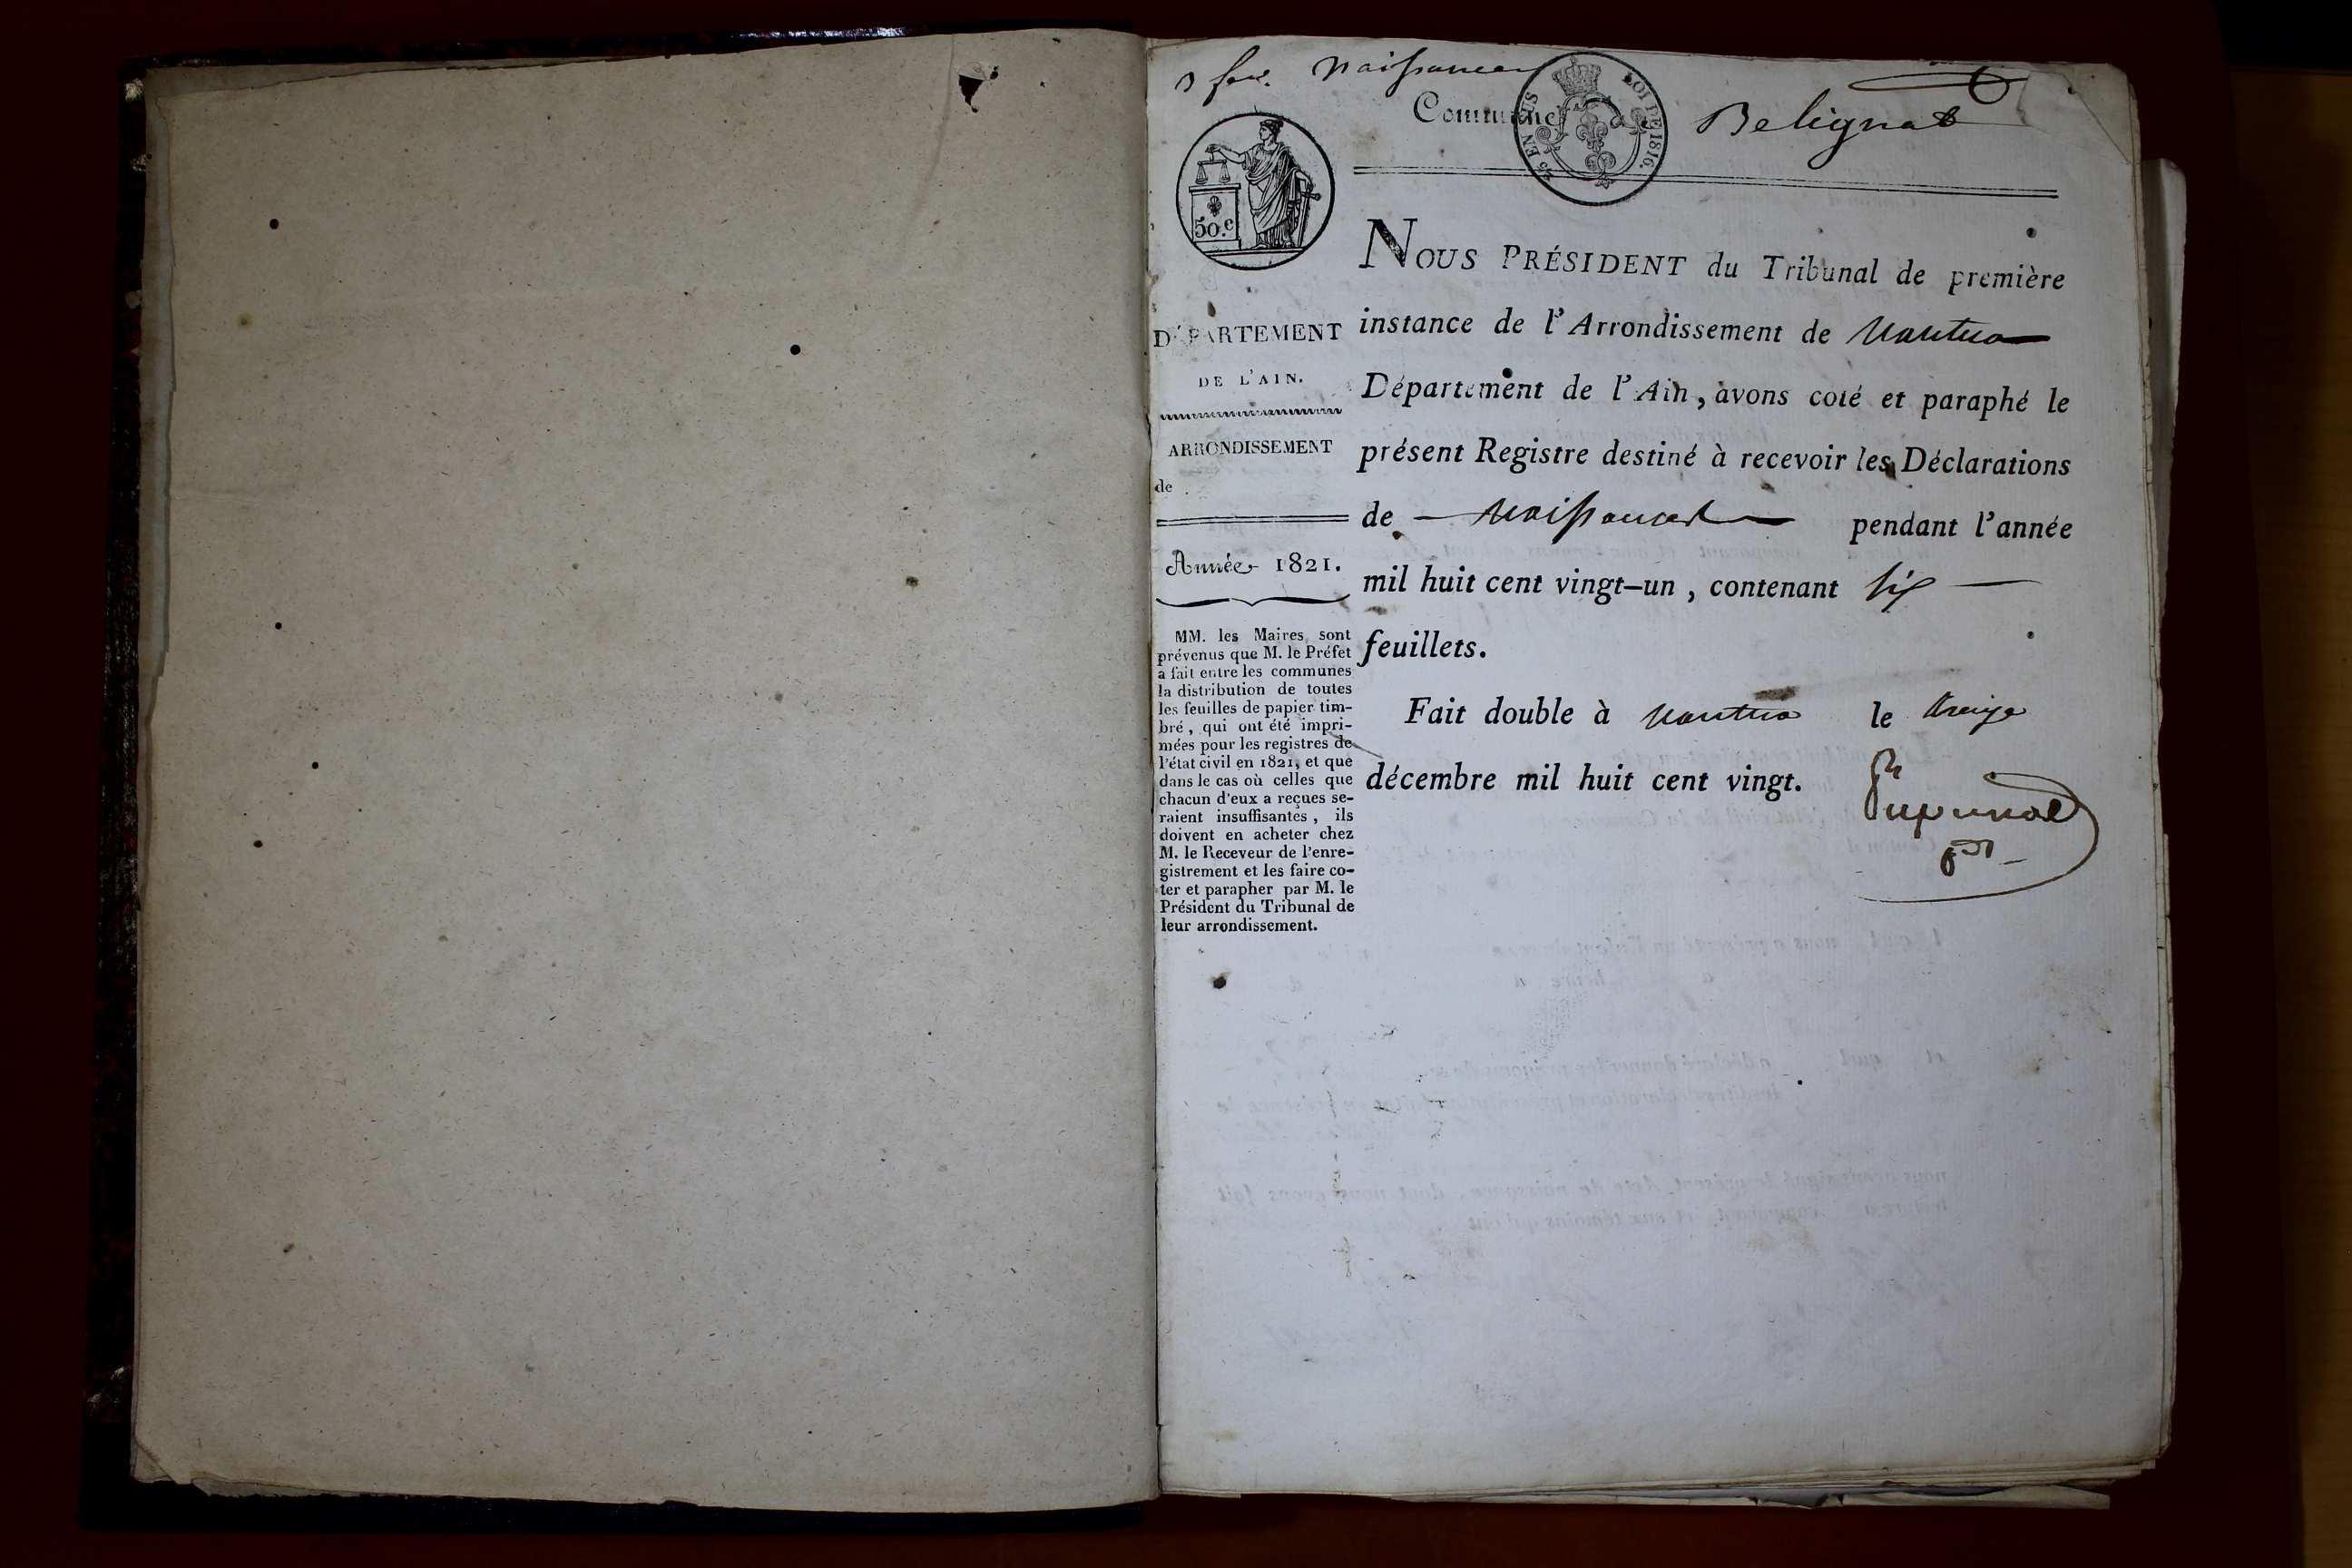 Naissances
Commune de Belignat
25 EN SUS
LOI DE 1816.
50.c
NOUS PRÉSIDENT du Tribunal de première
instance de l'Arrondissement de Nantua
Département de l'Ain, avons coté et paraphé le
présent Registre destiné à recevoir les Déclarations
de Naissances pendant l'année
mil huit cent vingt-un, contenant six
feuillets.
Fait double à Nantua le
décembre mil huit cent vingt.
DÉPARTEMENT
DE L'AIN.
ARRONDISSEMENT
de
Année 1821.
MM. les Maires sont
prévenus que M. le Préfet
a fait entre les communes
la distribution de toutes
les feuilles de papier tim-
bré, qui ont été impri-
mées pour les registres de
l'état civil en 1821, et que
dans le cas où celles que
chacun d'eux a reçues se-
raient insuffisantes, ils
doivent en acheter chez
M. le Receveur de l'enre-
gistrement et les faire co-
ter et parapher par M. le
Président du Tribunal de
leur arrondissement.